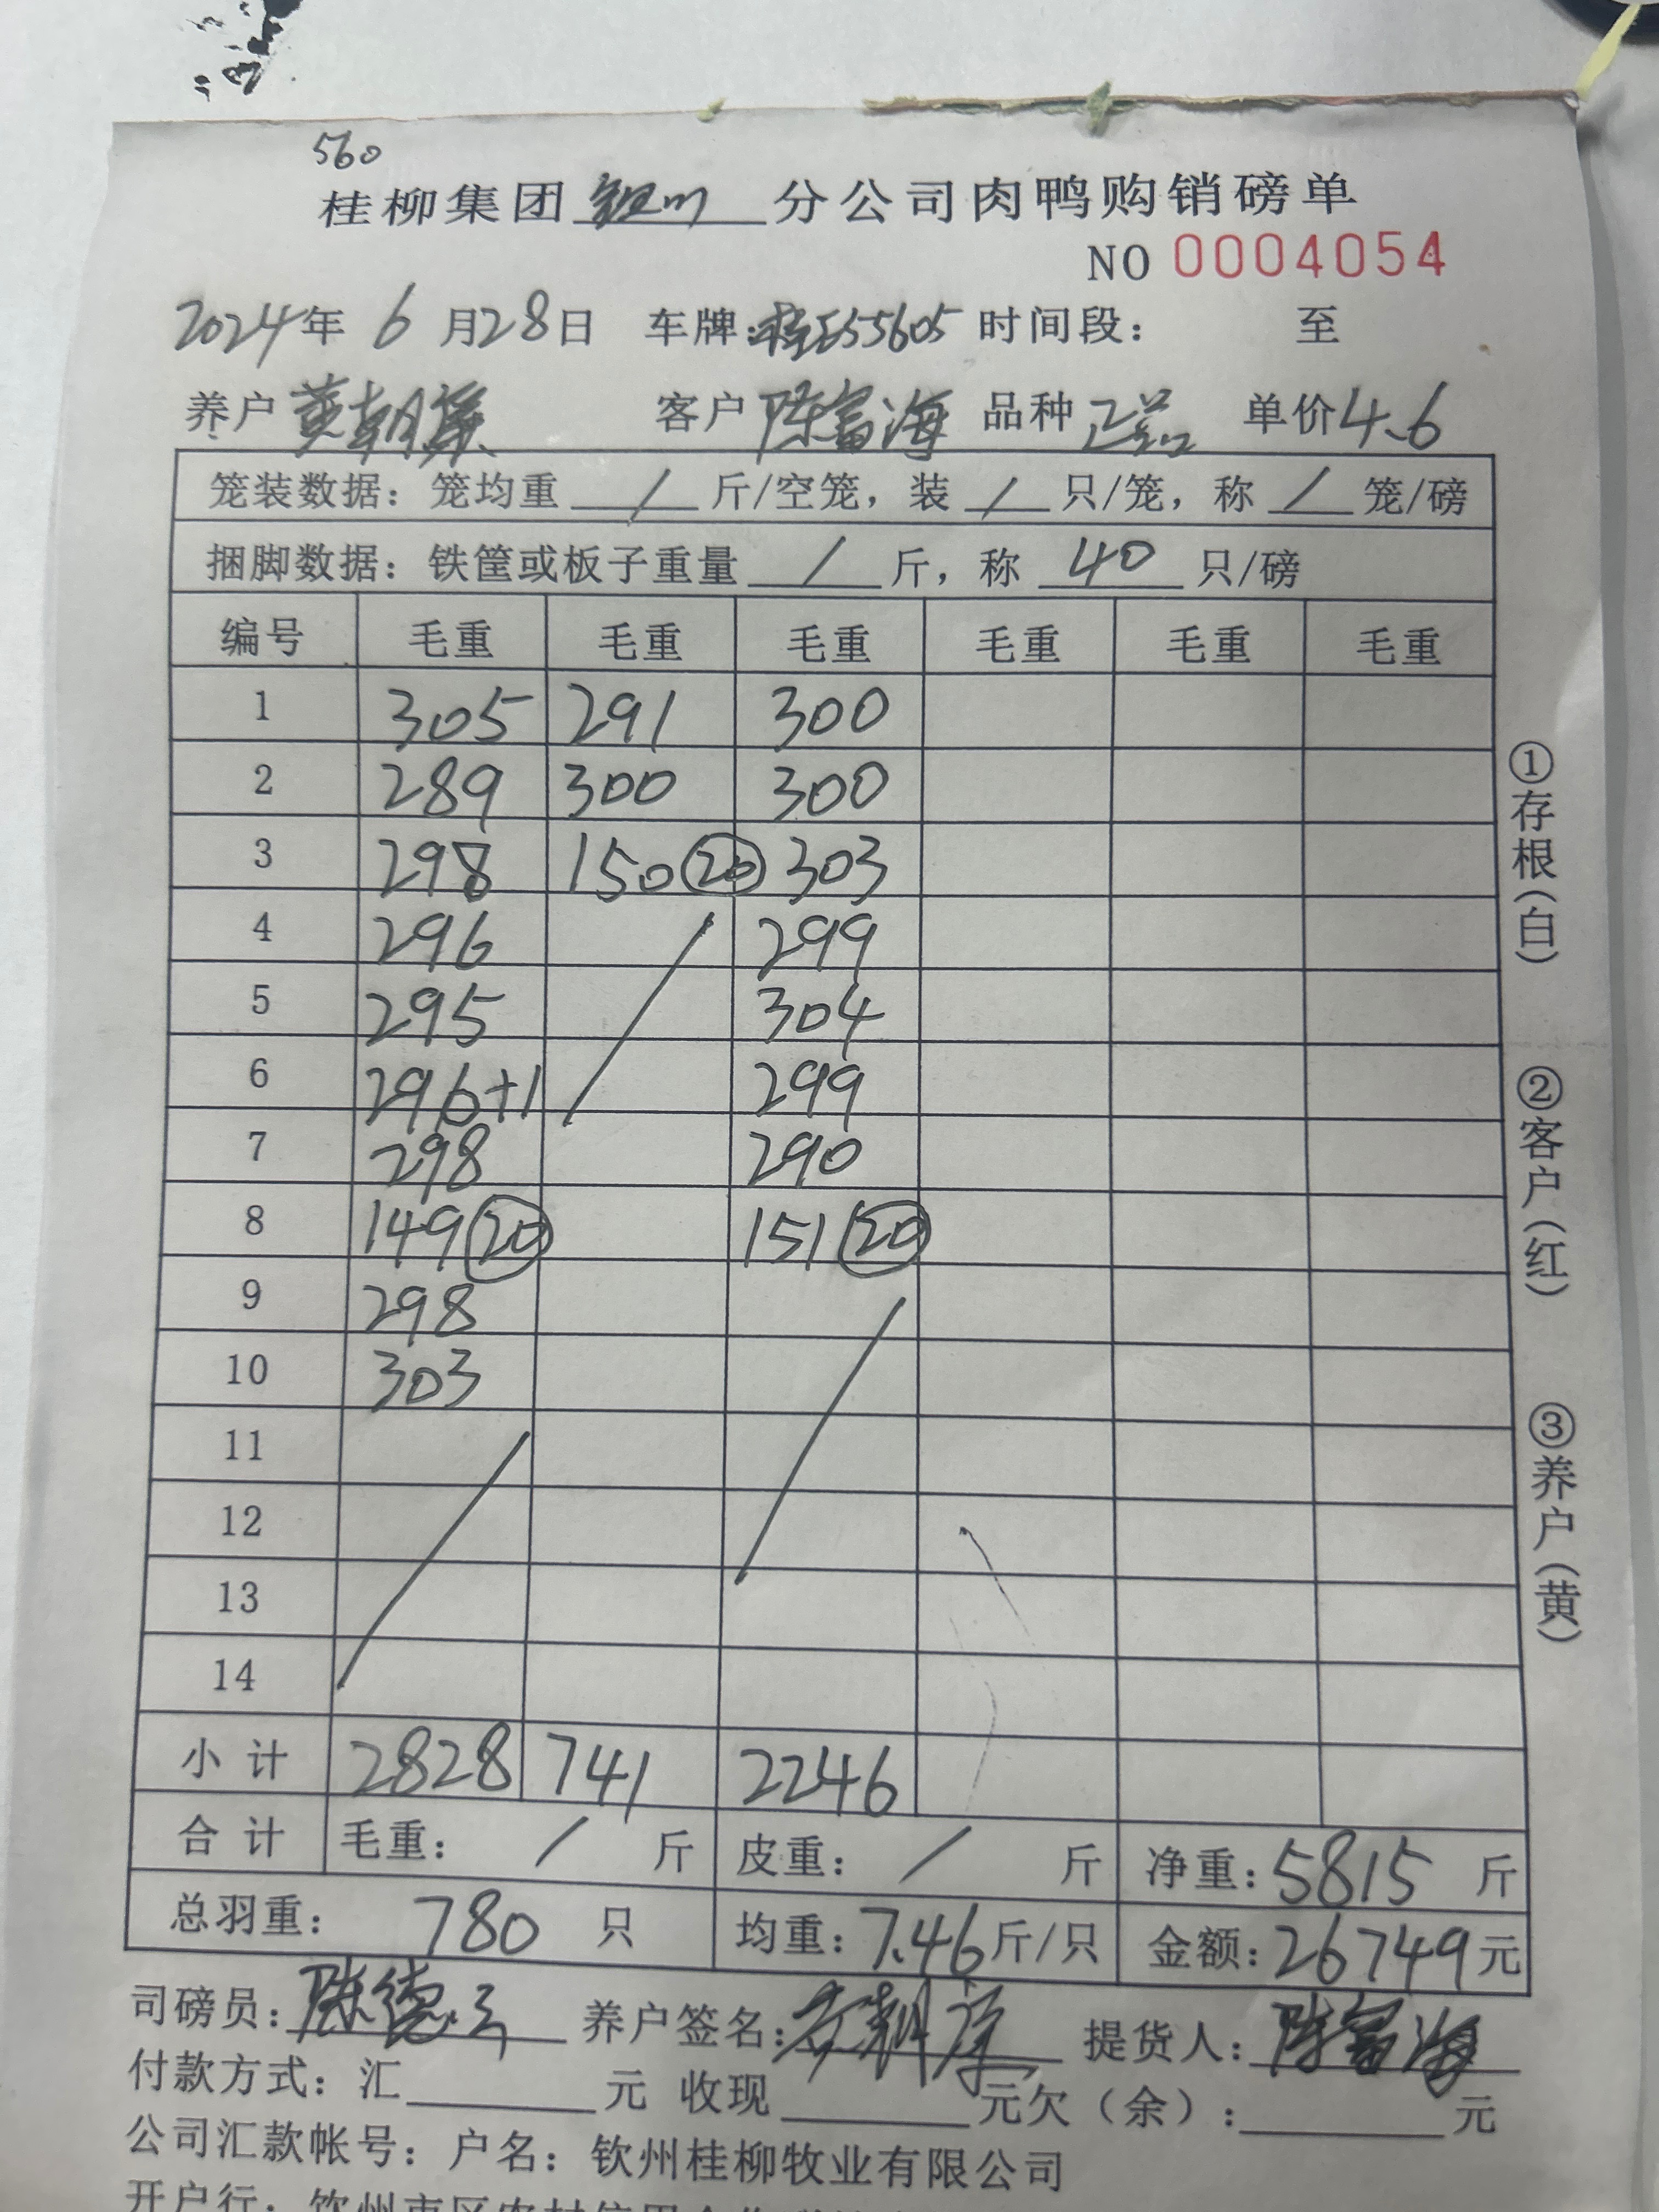 560
桂柳集团 钦州 分公司肉鸭购销磅单
NO 0004054
2024年 6月28日 车牌: 55605 时间段: 至
养户 黄朝 客户 陈富海 品种 正品 单价4.6
笼装数据: 笼均重 / 斤/空笼, 装 / 只/笼, 称 / 笼/磅
捆脚数据: 铁筐或板子重量 / 斤, 称 40 只/磅
编号 毛重 毛重 毛重 毛重 毛重 毛重
1 305 291 300
2 289 300 300
3 298 150 20 303
4 296 299
5 295 304
6 296+1 299
7 298 290
8 149 20 151 20
9 298
10 303
11
12
13
14
小计 2828 741 2246
合计 毛重: / 斤 皮重: / 斤 净重: 5815 斤
总羽重: 780 只 均重: 7.46 斤/只 金额: 26749元
司磅员: 陈德 养户签名: 提货人: 陈富海
付款方式: 汇 元 收现 元欠(余): 元
公司汇款帐号: 户名: 钦州桂柳牧业有限公司
开户行: 钦州市区农村信用合作
①存根(白) ②客户(红) ③养户(黄)